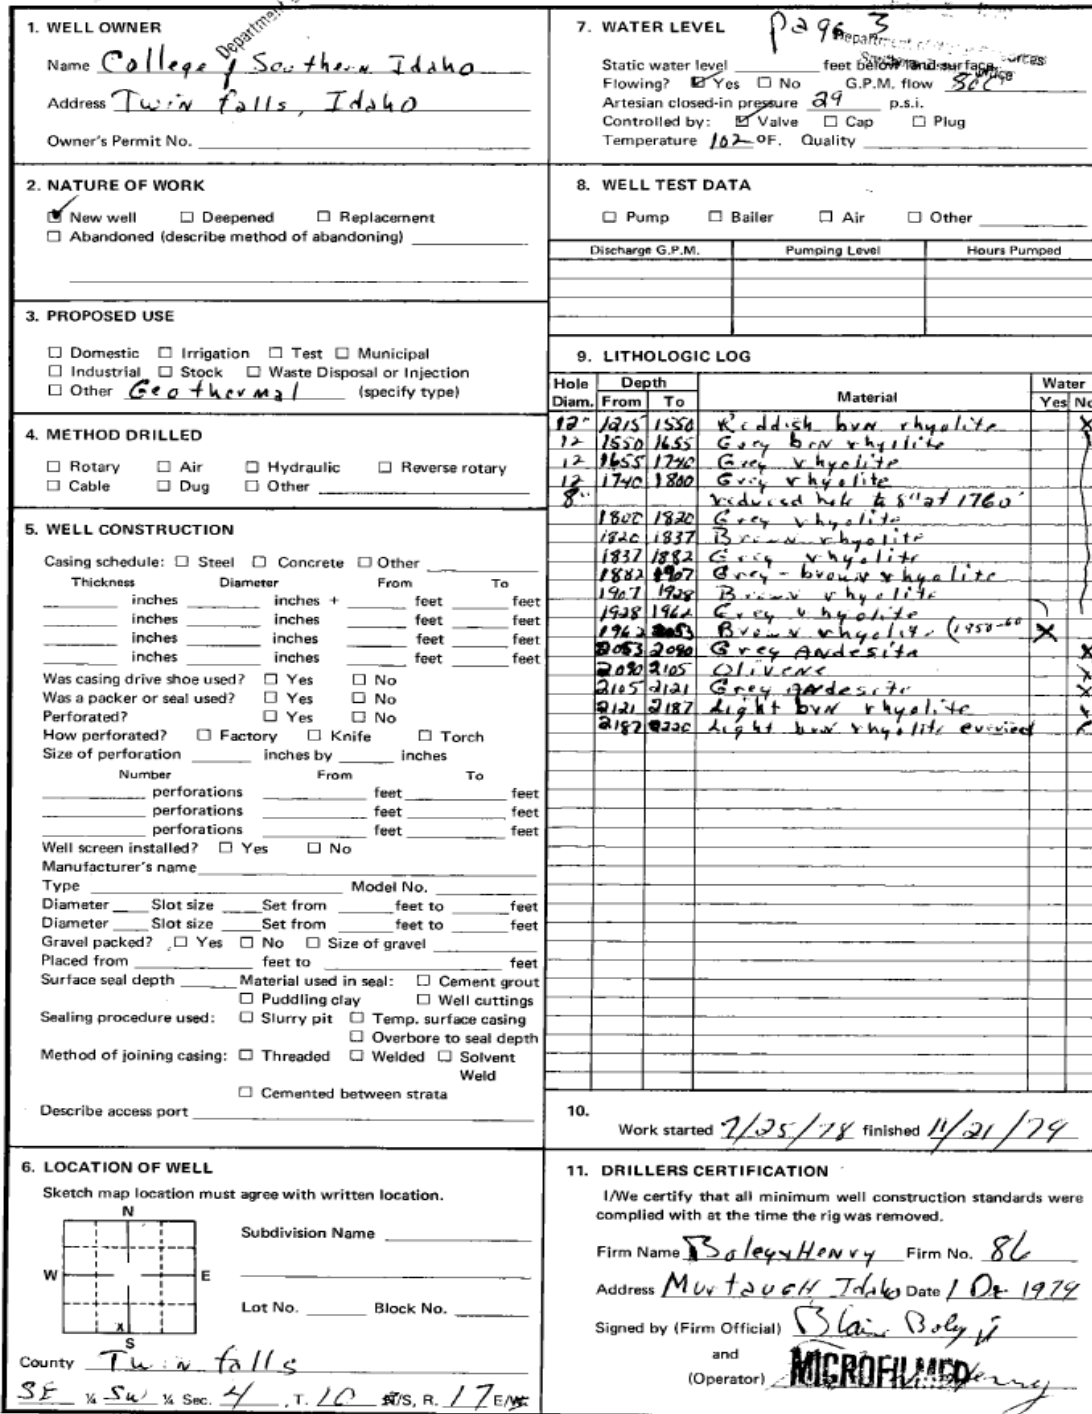 Department
1. WELL OWNER
Name College of Southern Idaho
Address Twin falls, Idaho
Owner's Permit No.
2. NATURE OF WORK
New well Deepened Replacement
Abandoned (describe method of abandoning)
3. PROPOSED USE
Domestic Irrigation Test Municipal
Industrial Stock Waste Disposal or Injection
Other Geothermal (specify type)
4. METHOD DRILLED
Rotary Air Hydraulic Reverse rotary
Cable Dug Other
5. WELL CONSTRUCTION
Casing schedule: Steel Concrete Other
Thickness Diameter From To
inches inches + feet feet
inches inches feet feet
inches inches feet feet
inches inches feet feet
Was casing drive shoe used? Yes No
Was a packer or seal used? Yes No
Perforated? Yes No
How perforated? Factory Knife Torch
Size of perforation inches by inches
Number From To
perforations feet feet
perforations feet feet
perforations feet feet
Well screen installed? Yes No
Manufacturer's name
Type Model No.
Diameter Slot size Set from feet to feet
Diameter Slot size Set from feet to feet
Gravel packed? Yes No Size of gravel
Placed from feet to feet
Surface seal depth Material used in seal: Cement grout
Puddling clay Well cuttings
Sealing procedure used: Slurry pit Temp. surface casing
Overbore to seal depth
Method of joining casing: Threaded Welded Solvent
Weld
Cemented between strata
Describe access port
6. LOCATION OF WELL
Sketch map location must agree with written location.
N
Subdivision Name
W E
Lot No. Block No.
x
S
County Twin falls
SE ¼ SW ¼ Sec. 4, T. 10 N/S, R. 17 E/W
7. WATER LEVEL page 3
Department of Resources
Static water level feet below land surface
Flowing? Yes No G.P.M. flow
Artesian closed-in pressure 29 p.s.i.
Controlled by: Valve Cap Plug
Temperature 102 °F. Quality
8. WELL TEST DATA
Pump Bailer Air Other
Discharge G.P.M. Pumping Level Hours Pumped
9. LITHOLOGIC LOG
Hole Depth Water
Diam. From To Material Yes No
12" 1215 1550 Reddish brn rhyolite X
12 1550 1655 Grey brn rhyolite
12 1655 1740 Grey rhyolite
12 1740 1800 Grey rhyolite
8" reduced hole to 8" at 1760'
1800 1820 Grey rhyolite
1820 1837 Brown rhyolite
1837 1882 Grey rhyolite
1882 1907 Grey-brown rhyolite
1907 1928 Brown rhyolite
1928 1962 Grey rhyolite
1962 2053 Brown rhyolite (1950-60 X
2053 2090 Grey Andesite X
2090 2105 Olivene X
2105 2121 Grey Andesite X
2121 2187 Light brn rhyolite X
2187 2220 Light brn rhyolite
10.
Work started 7/25/78 finished 11/21/79
11. DRILLERS CERTIFICATION
I/We certify that all minimum well construction standards were
complied with at the time the rig was removed.
Firm Name Boley & Henry Firm No. 86
Address Murtaugh Idaho Date 1 De 1979
Signed by (Firm Official) Blain Boley Jr
and
(Operator) Henry
MICROFILMED